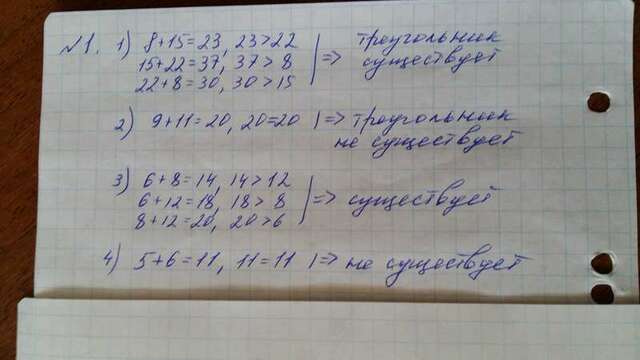 №1. 1) 8+15=23, 23>22 | => треугольник
15+22=37, 37>8 | => существует
22+8=30, 30>15
2) 9+11=20, 20=20 |=> треугольник
не существует
3) 6+8=14, 14>12
6+12=18, 18>8 |=> существует
8+12=20, 20>6
4) 5+6=11, 11=11 |=> не существует